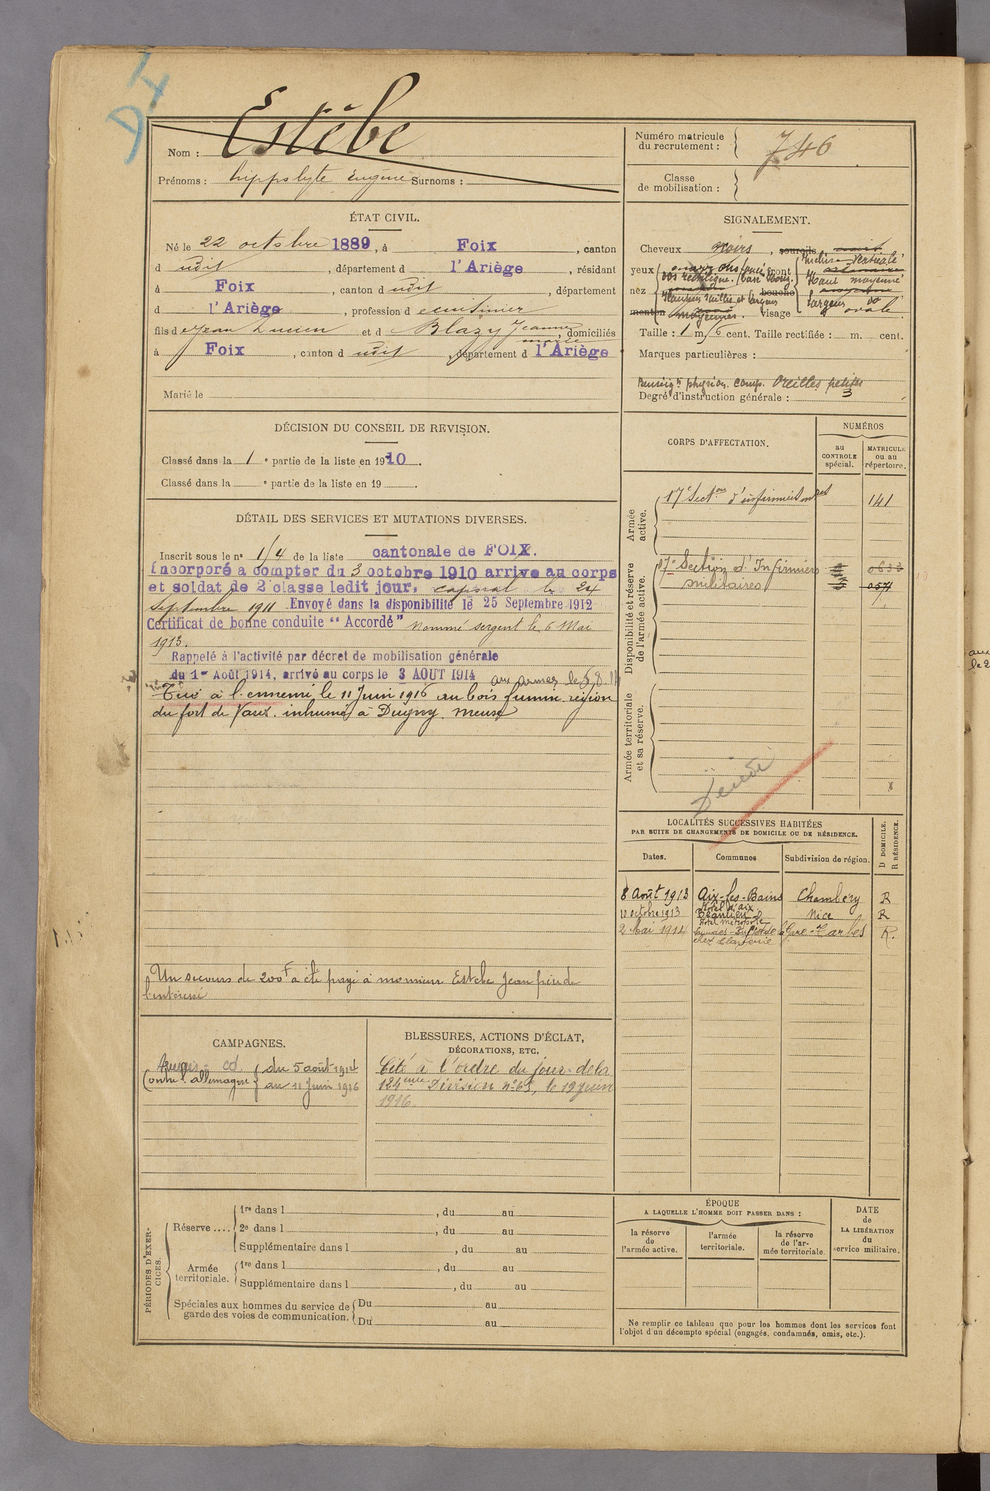 D4
Nom : Estèbe
Prénoms : hippolyte Eugène Surnoms :
Numéro matricule
du recrutement : 746
Classe
de mobilisation :
ÉTAT CIVIL.
Né le 22 octobre 1889, à Foix, canton
d udit, département d l'Ariège, résidant
à Foix, canton d udit, département
d l'Ariège, profession d cuisinier
fils d Jean Lucien et d Blazy Jeanne, domiciliés
à Foix, canton d udit, département d l'Ariège
Marié le
SIGNALEMENT.
Cheveux noirs, sourcils
yeux front
nez bouche
menton visage ovale
Taille : 1 m. 6 cent. Taille rectifiée : m. cent.
Marques particulières :
Renseign.ts physion. comp. Oreilles petites
Degré d'instruction générale : 3
DÉCISION DU CONSEIL DE REVISION.
Classé dans la 1e partie de la liste en 1910.
Classé dans la e partie de la liste en 19 .
DÉTAIL DES SERVICES ET MUTATIONS DIVERSES.
Inscrit sous le n° 1/4 de la liste cantonale de FOIX.
Incorporé a compter du 3 octobre 1910 arrive au corps
et soldat de 2e classe ledit jour, caporal le 24
Septembre 1911 Envoyé dans la disponibilité le 25 Septembre 1912
Certificat de bonne conduite "Accordé" nommé sergent le 6 Mai
1913.
Rappelé à l'activité par décret de mobilisation générale
du 1er Août 1914, arrivé au corps le 3 AOUT 1914 aux armées le 5.8.14
Tué à l'ennemi le 11 Juin 1916 au bois fumin région
du fort de Vaux. inhumé à Dugny Meuse
Un secours de 200f a été payé à monsieur Estèbe Jean père de
l'intéressé
CORPS D'AFFECTATION.
NUMÉROS
au
CONTROLE
spécial.
MATRICULE
ou au
répertoire.
Armée
active.
17e Section d'infirmiers mres 141
Disponibilité et réserve
de l'armée active.
17e Section d'Infirmiers
militaires 0571
Armée territoriale
et sa réserve.
LOCALITÉS SUCCESSIVES HABITÉES
PAR SUITE DE CHANGEMENTS DE DOMICILE OU DE RÉSIDENCE.
D DOMICILE.
R RÉSIDENCE.
Dates. Communes Subdivision de région.
8 Août 1913 Aix-les-Bains Chambéry R
10 octobre 1913 Beaulieu Nice R
Hôtel Métropole
2 Mai 1914 Tarbes R.
CAMPAGNES.
Contre l'allemagne du 5 août 1914
au 11 Juin 1916
BLESSURES, ACTIONS D'ÉCLAT,
DÉCORATIONS, ETC.
Cité à l'ordre du jour de la
124ème Division n° 65, le 19 juin
1916.
PÉRIODES D'EXERCICES.
Réserve .... 1re dans l , du au
2e dans l , du au
Supplémentaire dans l , du au
Armée
territoriale. 1re dans l , du au
Supplémentaire dans l , du au
Spéciales aux hommes du service de
garde des voies de communication. Du au
Du au
ÉPOQUE
A LAQUELLE L'HOMME DOIT PASSER DANS :
la réserve
de
l'armée active.
l'armée
territoriale.
la réserve
de l'ar-
mée territoriale.
DATE
de
LA LIBÉRATION
du
service militaire.
Ne remplir ce tableau que pour les hommes dont les services font
l'objet d'un décompte spécial (engagés, condamnés, omis, etc.).